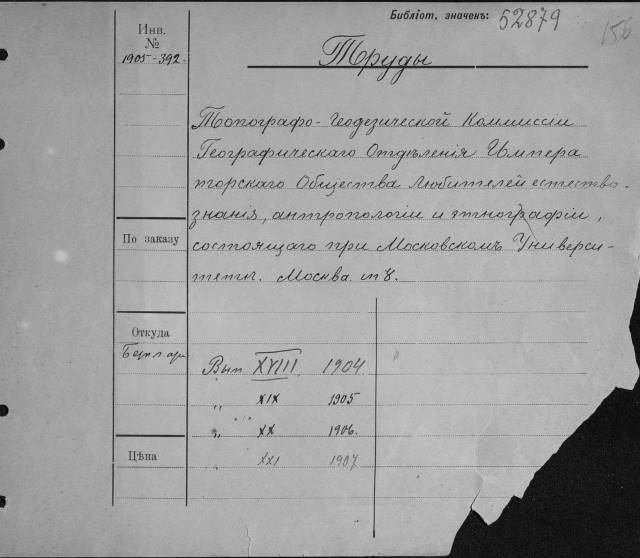 Библіот. значенъ: 52879
156
Инв.
№
1905-392.
Труды
Топографо-Геодезической Коммиссіи
Географическаго Отдѣленія Импера
торскаго Общества Любителей естество-
знанія, антропологіи и этнографіи,
состоящаго при Московскомъ Универси-
тетѣ. Москва. in 8.
По заказу
Откуда
Цѣна
Вып XVIII 1904
" XIX 1905
" XX 1906.
" XXI 1907